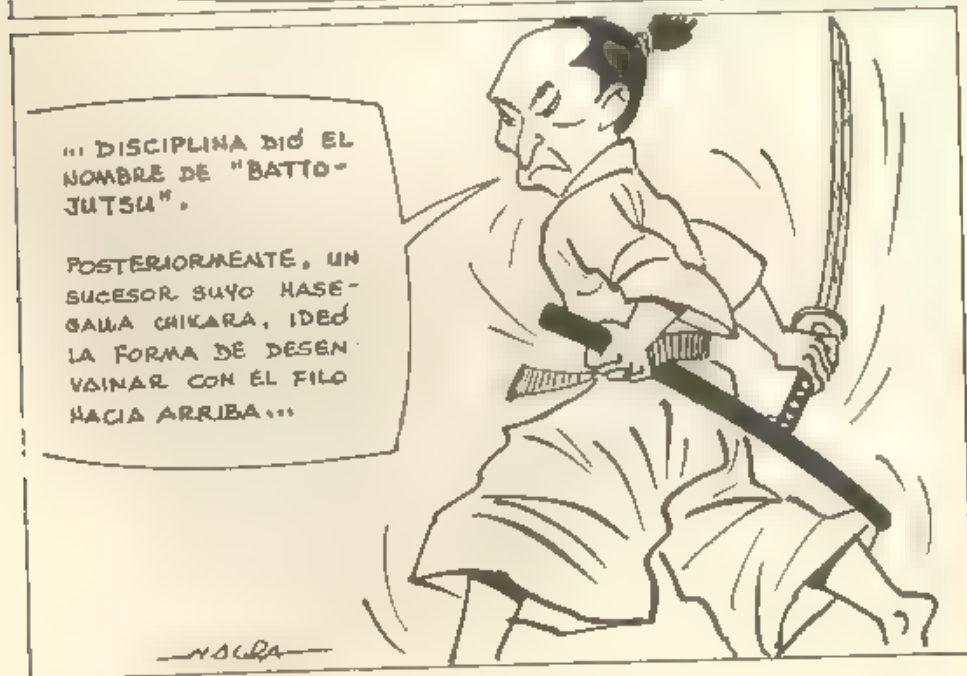 ... DISCIPLINA DIÓ EL
NOMBRE DE "BATTO-
JUTSU".
POSTERIORMENTE, UN
SUCESOR SUYO HASE-
GAUA CHIKARA, IDEÓ
LA FORMA DE DESEN
VAINAR CON EL FILO
HACIA ARRIBA...